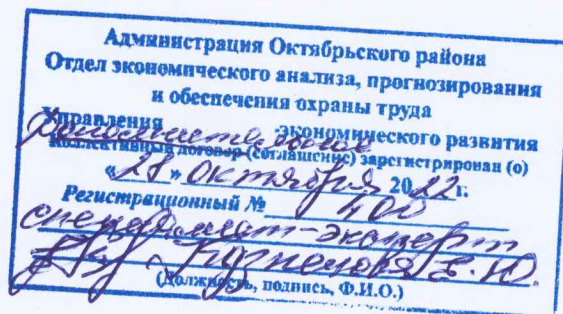 Администрация Октябрьского района
Отдел экономического анализа, прогнозирования
и обеспечения охраны труда
Управления экономического развития
Дополнительное
Коллективный договор (соглашение) зарегистрирован (о)
«28» октября 2022г.
Регистрационный № 400
специалист-эксперт
Кузнецова Е.Ю.
(Должность, подпись, Ф.И.О.)